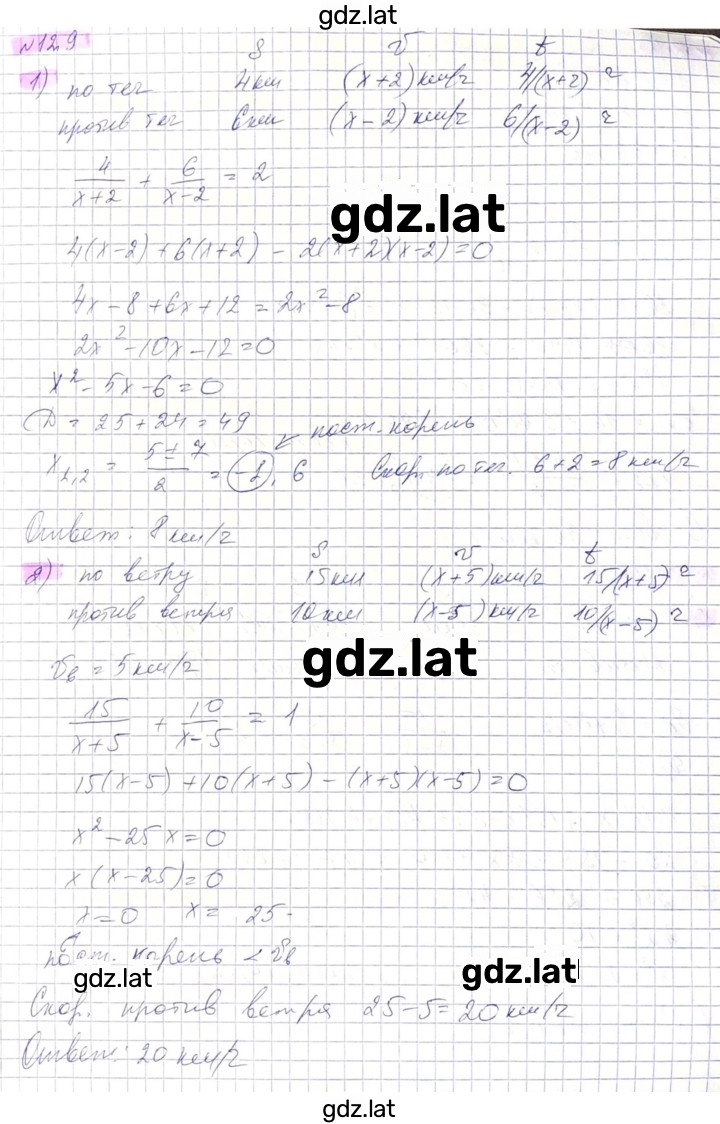 gdz.lat
№129
S V t
1) по теч 4км (x+2) км/ч 4/(x+2) ч
против теч 6км (x-2) км/ч 6/(x-2) ч
4/(x+2) + 6/(x-2) = 2
gdz.lat
4(x-2)+6(x+2) - 2(x+2)(x-2)=0
4x-8+6x+12=2x²-8
2x²-10x-12=0
x²-5x-6=0
D=25+24=49 пост. корень
x1,2 = (5±7)/2 = -1, 6 Скор. по теч. 6+2=8км/ч
Ответ: 8км/ч
S V t
2) по ветру 15км (x+5)км/ч 15/(x+5) ч
против ветра 10км (x-5) км/ч 10/(x-5) ч
gdz.lat
Vв = 5км/ч
15/(x+5) + 10/(x-5) = 1
15(x-5)+10(x+5)-(x+5)(x-5)=0
x²-25x=0
x(x-25)=0
x=0 x= 25
пост. корень < Vв
gdz.lat gdz.lat
Скор. против ветра 25-5=20км/ч
Ответ: 20км/ч
gdz.lat